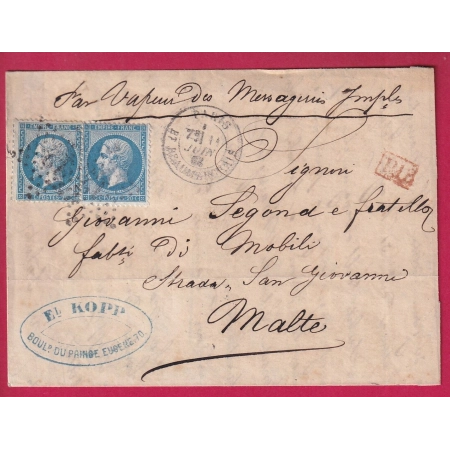 Par Vapeur des Messageries Imples
EMPIRE FRANC EMPIRE FRANC
PARIS
P.D
Signori
Giovanni Segond e fratello
fabti di Mobili
Strada San Giovanni
Malte
EL KOPP
BOULD DU PRINCE EUGENE 70